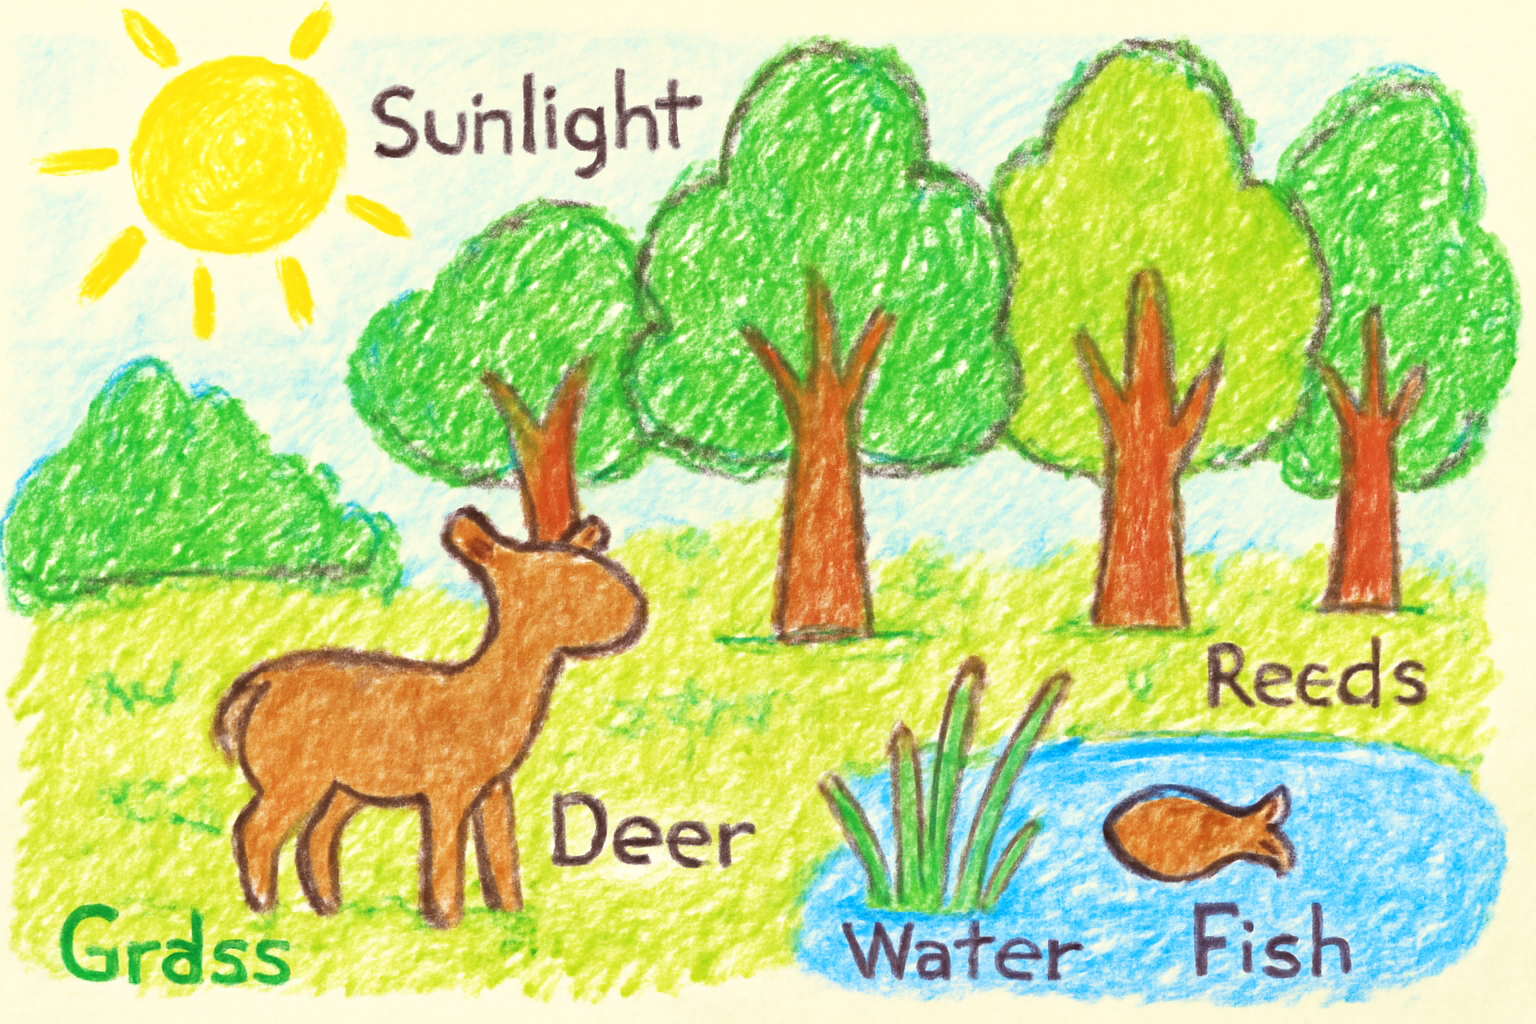 Sunlight
Reeds
Deer
Grass
Water
Fish